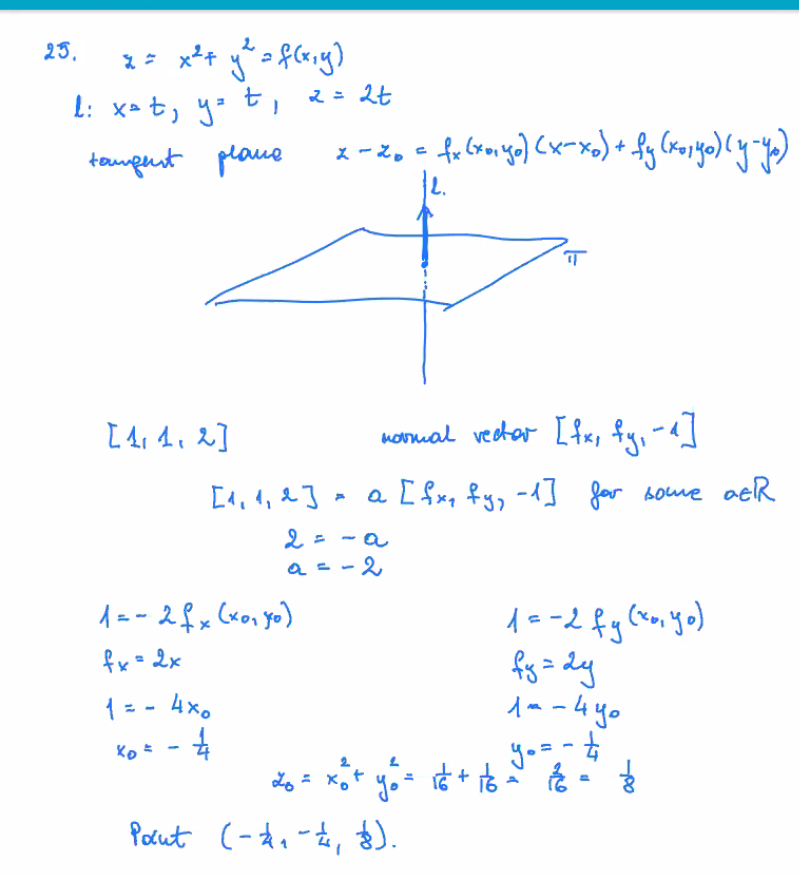 25. z = x² + y² = f(x,y)
l: x = t, y = t, z = 2t
tangent plane z - z₀ = fₓ(x₀,y₀)(x-x₀) + f_y(x₀,y₀)(y-y₀)
l.
π
[1, 1, 2] normal vector [fₓ, f_y, -1]
[1, 1, 2] = a [fₓ, f_y, -1] for some a∈ℝ
2 = -a
a = -2
1 = -2 fₓ(x₀,y₀) 1 = -2 f_y(x₀,y₀)
fₓ = 2x f_y = 2y
1 = -4x₀ 1 = -4y₀
x₀ = -1/4 y₀ = -1/4
z₀ = x₀² + y₀² = 1/16 + 1/16 = 2/16 = 1/8
Point (-1/4, -1/4, 1/8).